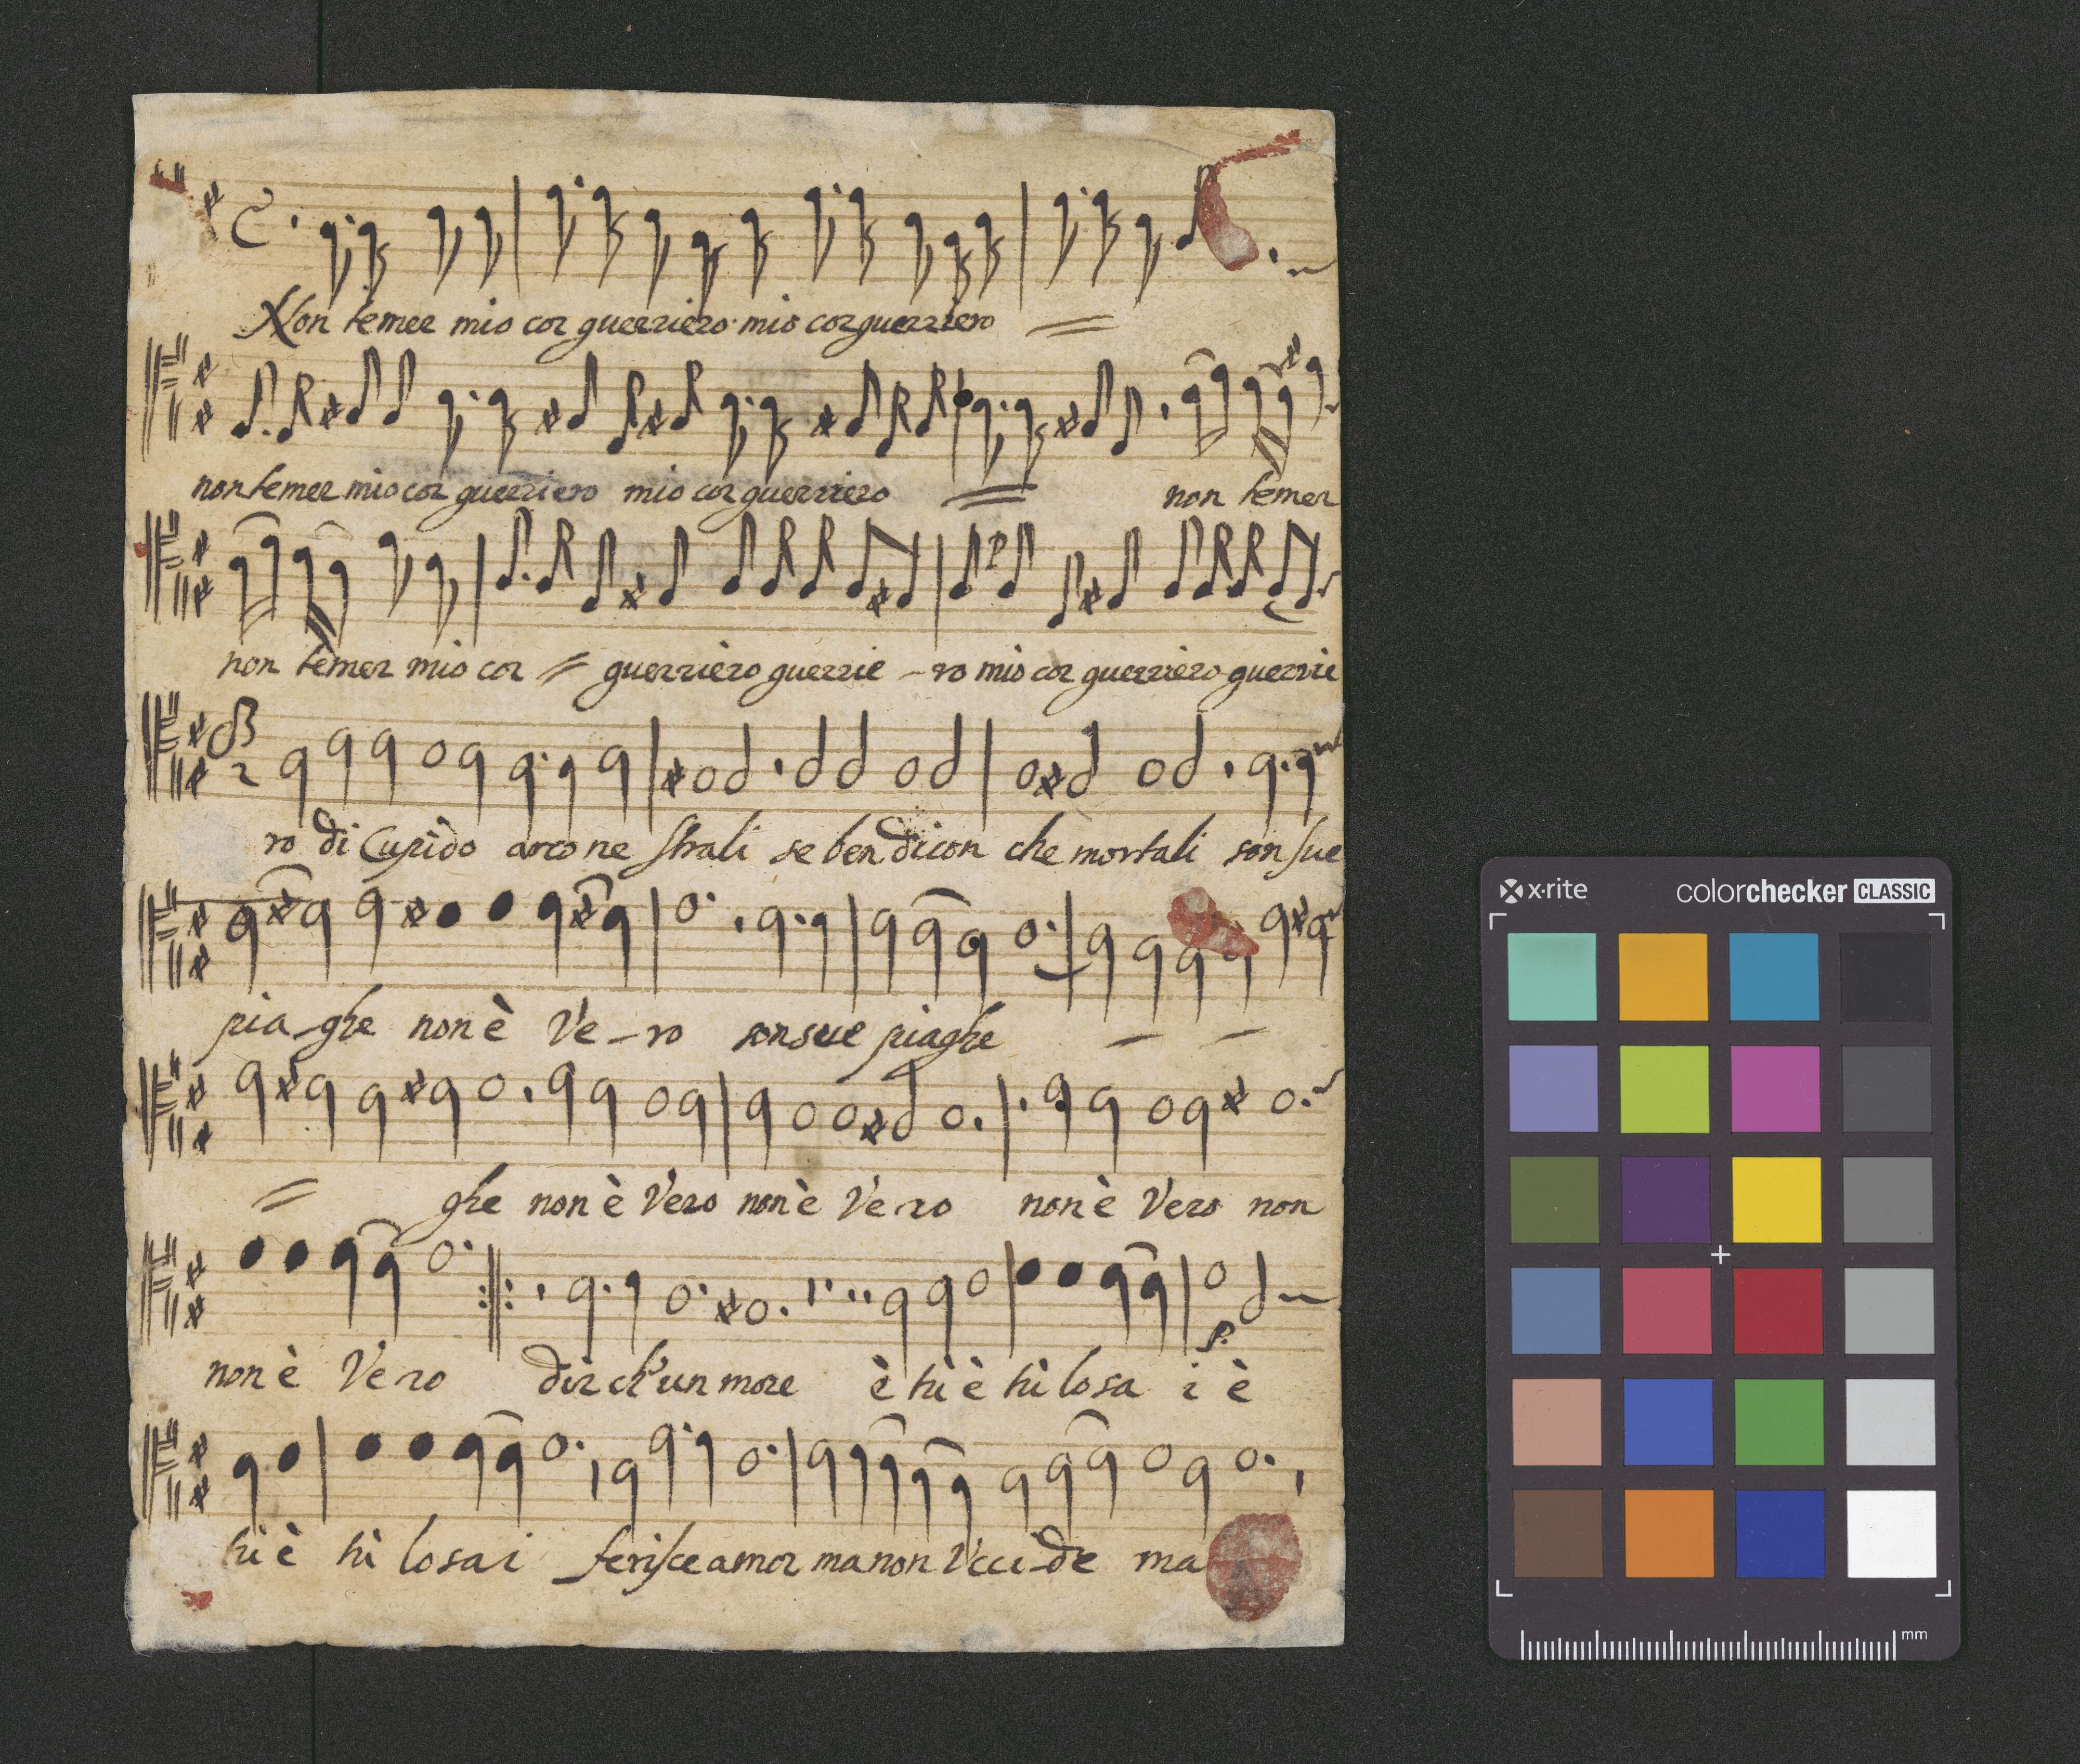 Non temer mio cor guerriero mio cor guerriero
non temer mio cor guerriero mio cor guerriero non temer
non temer mio cor guerriero guerrie - ro mio cor guerriero guerrie
ro di Cupido arco ne strali se ben dicon che mortali son sue
pia - ghe non è Ve - ro son sue piaghe
ghe non è Vero non è Ve ro non è Vero non
non è Ve ro dir ch'un more è hi è hi lo sa i è
hi è hi lo sa i ferisce amor ma non Vcci - de ma
x·rite colorchecker CLASSIC
mm